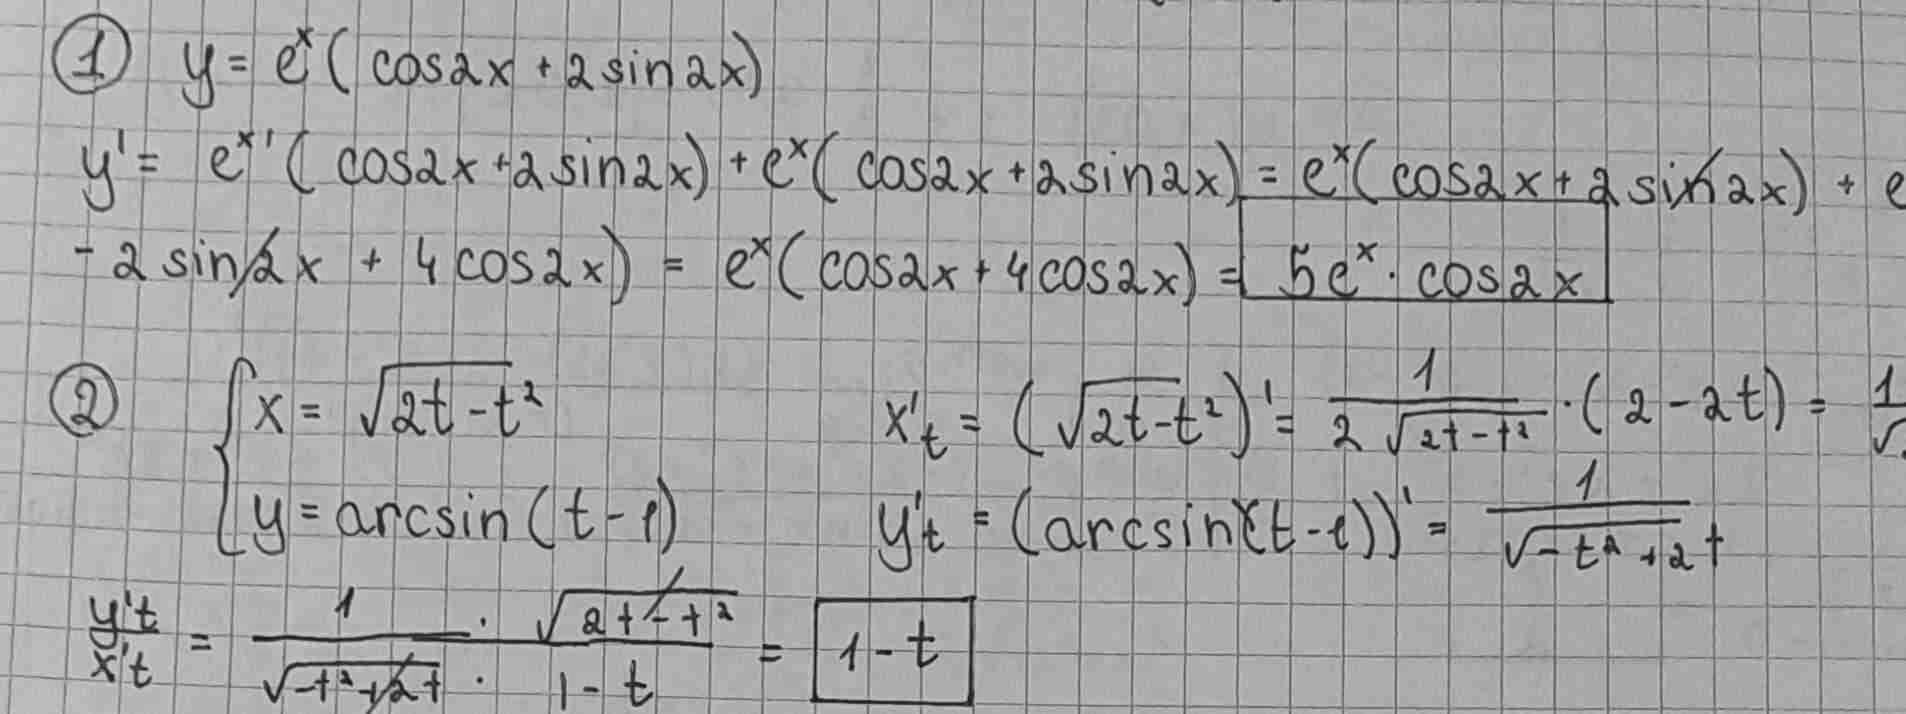 ① y = eˣ ( cos2x + 2 sin 2x)
y' = eˣ' ( cos2x + 2 sin2x) + eˣ ( cos2x + 2 sin2x) = eˣ( cos2x + 2 sin 2x) + e
- 2 sin 2x + 4 cos2x) = eˣ ( cos2x + 4 cos2x) = 5eˣ · cos2x
② { x = √(2t-t²) x't = (√(2t-t²))' = 1/(2√(2t-t²)) · (2 - 2t) = 1/√
y = arcsin (t - 1) y't = (arcsin(t-1))' = 1/√(-t² + 2t)
y't/x't = 1/√(-t²+2t) · √(2t-t²)/(1-t) = 1 - t